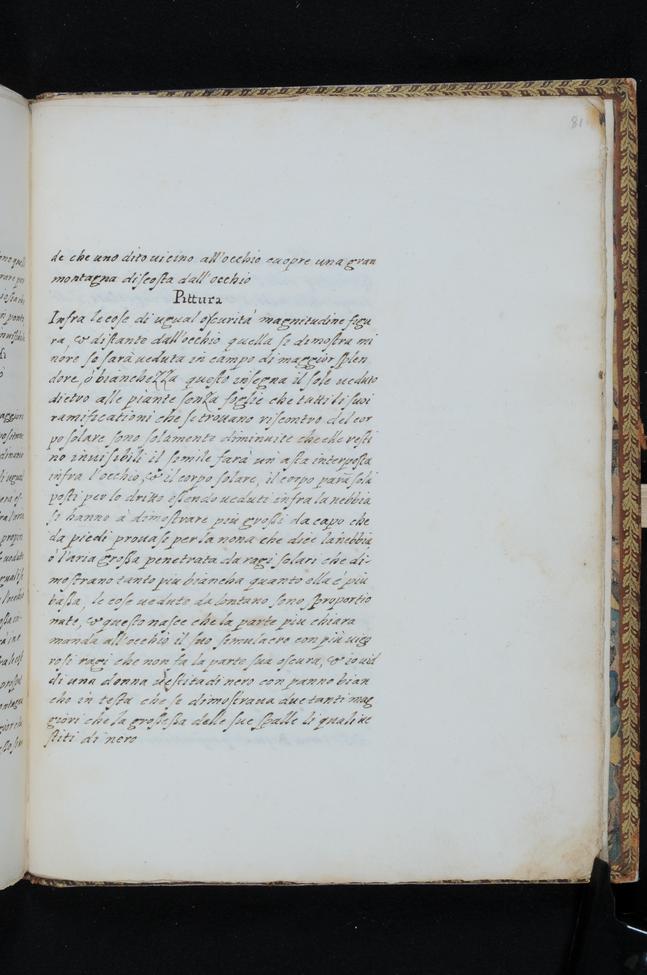 81
de che uno dito vicino all'occhio cuopre una gran
montagna discosta dall'occhio
Pittura
Infra le cose di ugual oscurità magnitudine figu
ra, et distanto dall'occhio quella se dimostra mi
nore so sarà veduta in campo di maggior splen
dore, ò bianchezza questo insegna il sole veduto
dietro alle piante senza foglie che tutti li suoi
ramificationi che se trouano riscontro del cor
po solare sono solamente diminuite che elle resti
no inuisibili il semile farà un asta interposta
infra l'occhio, et il corpo solare, il corpo paraseli
posti per lo dritto essendo ueduti infra la nebbia
si hanno à dimostrare più grossi da capo che
da piedi prouase per la nona che dice la nebbia
ò l'aria grossa penetrata da ragi solari che di-
mostrano tanto piu biancha quanto ella è più
bassa, le cose uedute da lontano sono sproportio
nate, et questo nasce che la parte piu chiara
manda all'occhio il suo simulacro con più uig
rosi ragi che non fa la parte sua oscura, et io uid
di una donna uestita di nero con panno bian
cho in testa che se dimostraua due tanti mag
giori che la grossessa delle sue spalle li quali ue
stiti di nero